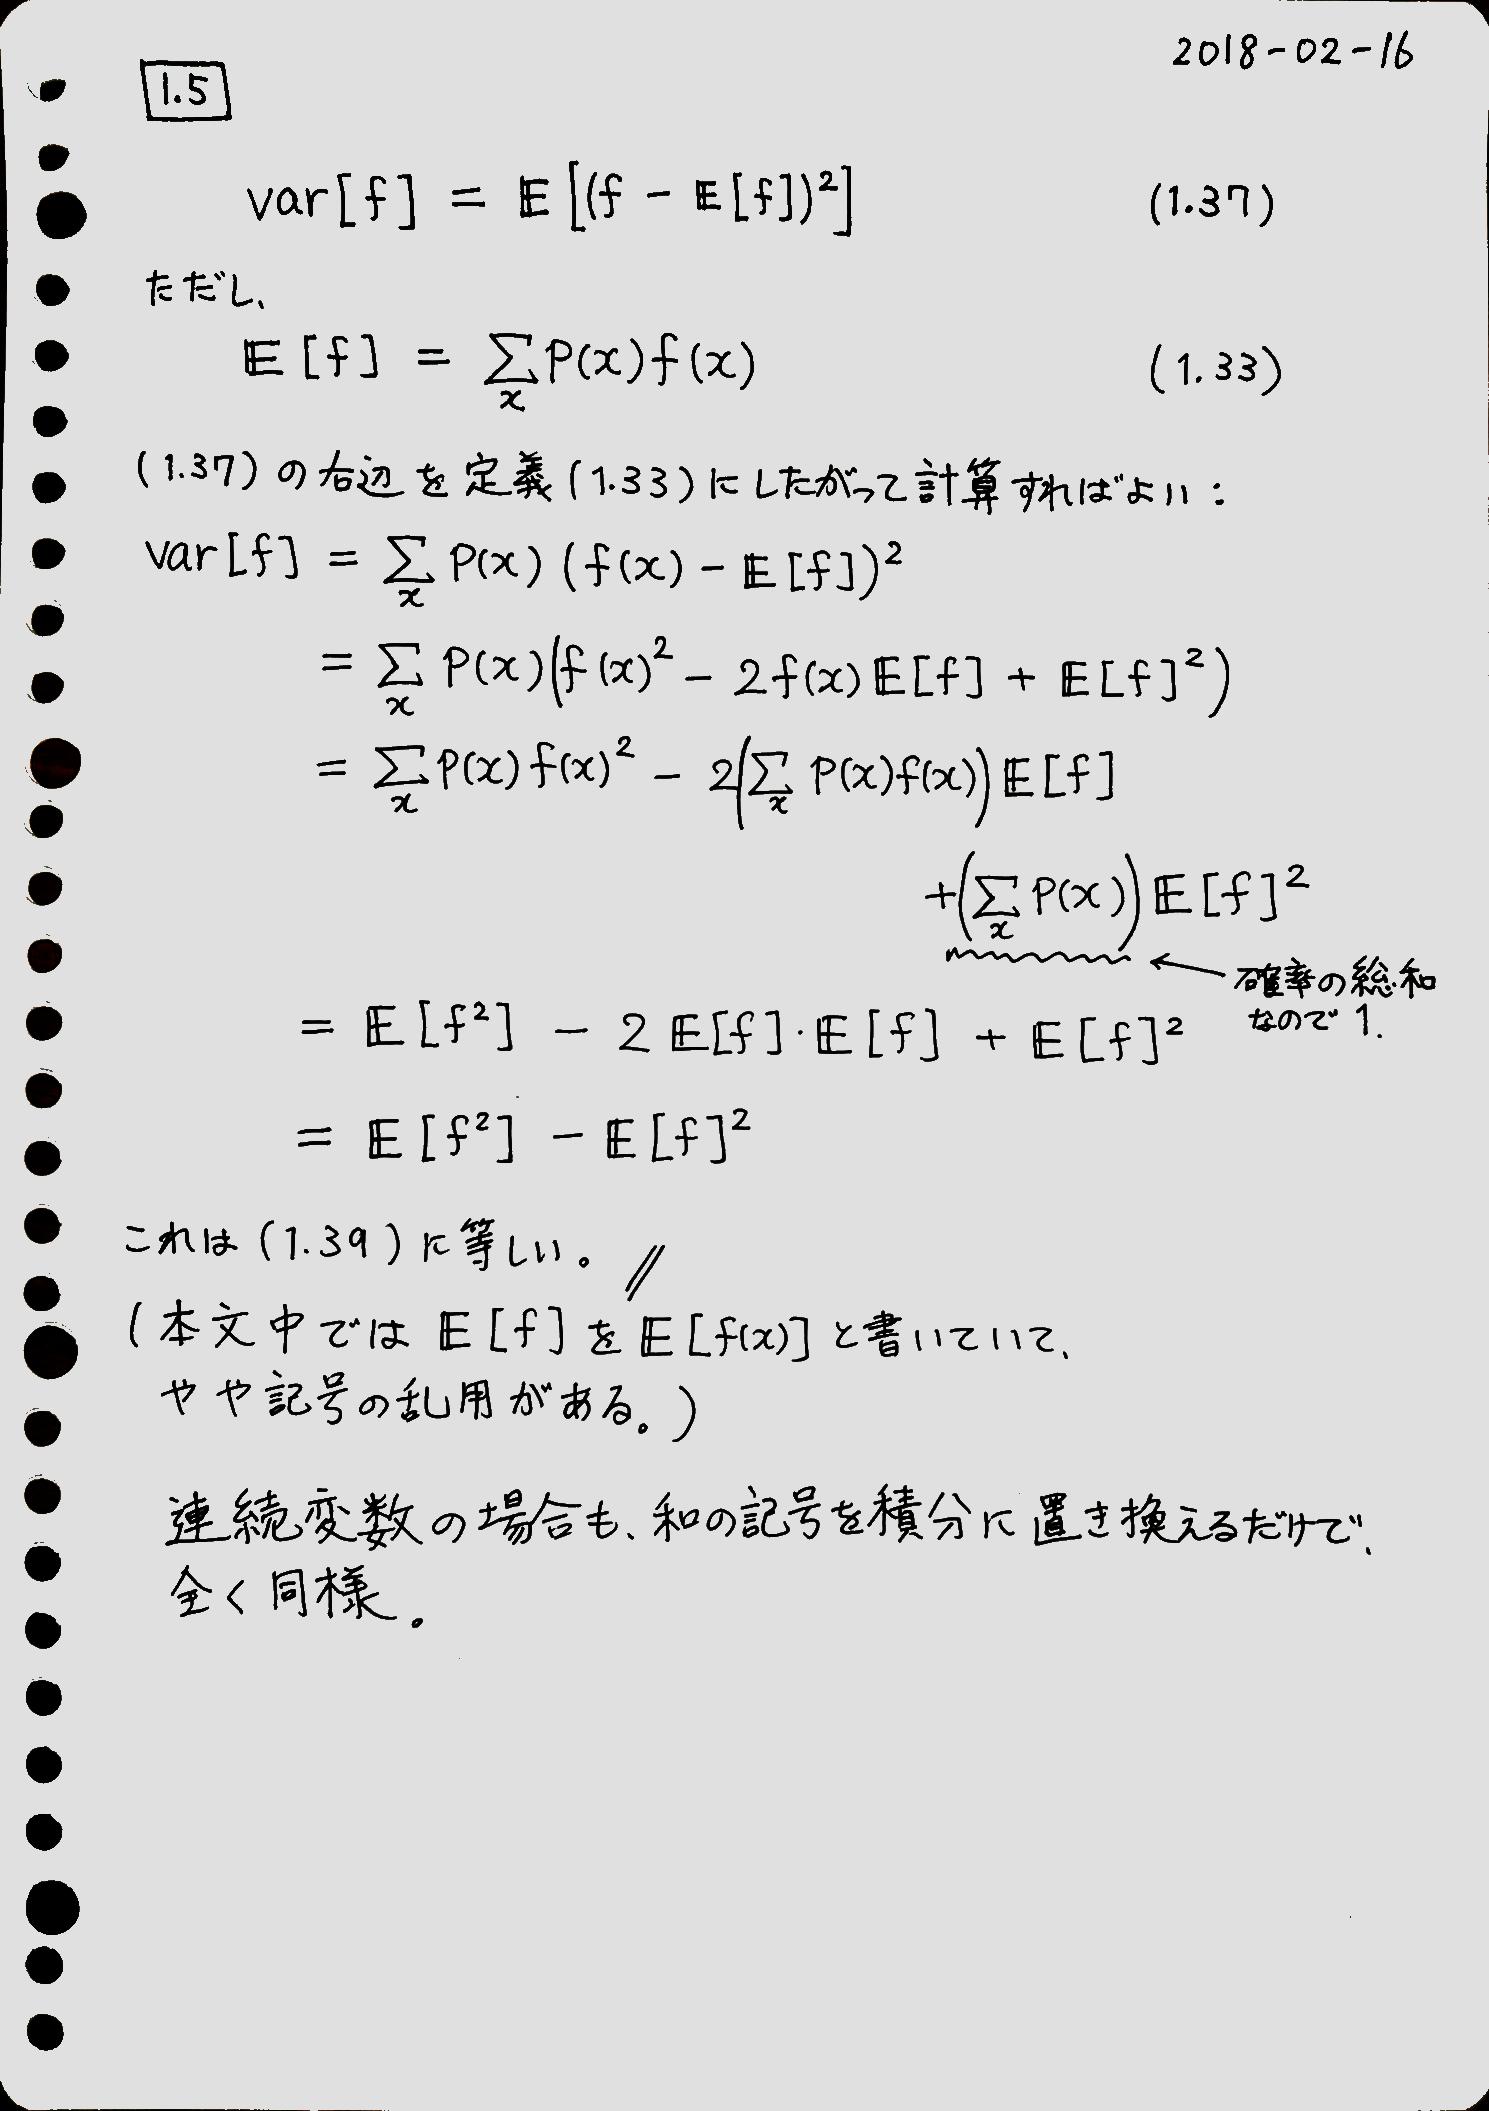 2018-02-16
1.5
var[f] = 𝔼[(f - 𝔼[f])²] (1.37)
ただし、
𝔼[f] = ∑ₓ P(x)f(x) (1.33)
(1.37)の右辺を定義(1.33)にしたがって計算すればよい:
var[f] = ∑ₓ P(x)(f(x) - 𝔼[f])²
= ∑ₓ P(x)(f(x)² - 2f(x)𝔼[f] + 𝔼[f]²)
= ∑ₓ P(x)f(x)² - 2(∑ₓ P(x)f(x))𝔼[f]
+(∑ₓ P(x))𝔼[f]²
← 確率の総和
なので 1.
= 𝔼[f²] - 2𝔼[f]·𝔼[f] + 𝔼[f]²
= 𝔼[f²] - 𝔼[f]²
これは(1.39)に等しい。//
(本文中では𝔼[f]を𝔼[f(x)]と書いていて、
やや記号の乱用がある。)
連続変数の場合も、和の記号を積分に置き換えるだけで、
全く同様。